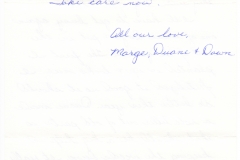 Take care now.
All our love,
Marge, Duane & Dawn